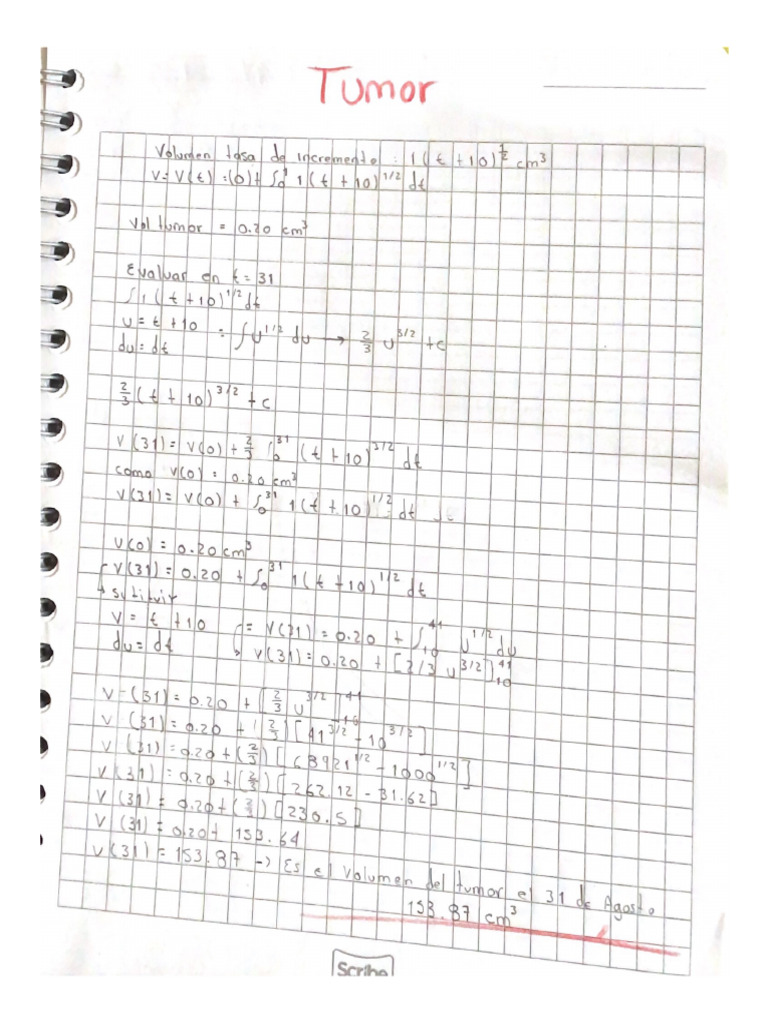 Tumor
Volumen tasa de incremento : 1(t+10)^1/2 cm³
V=V(t) =(0)+∫₀¹ 1(t+10)^1/2 dt
Vol tumor = 0.20 cm³
Evaluar en t=31
∫1(t+10)^1/2 dt
u=t+10 = ∫u^1/2 du → 2/3 u^3/2 +c
du=dt
2/3(t+10)^3/2 +c
V(31)=V(0)+2/3 ∫₀³¹ (t+10)^3/2 dt
como V(0)=0.20cm³
V(31)=V(0)+∫₀³¹ 1(t+10)^1/2 dt
V(0)=0.20cm³
V(31)=0.20+∫₀³¹ 1(t+10)^1/2 dt
↳ sutituir
V=t+10 = V(31)=0.20+∫₁₀⁴¹ u^1/2 du
du=dt V(31)=0.20+[2/3 u^3/2]₁₀⁴¹
V-(31)=0.20+[2/3 u^3/2]₁₀⁴¹
V-(31)=0.20+(2/3)[41^3/2-10^3/2]
V-(31)=0.20+(2/3)[68921^1/2-1000^1/2]
V(31)=0.20+(2/3)[262.12-31.62]
V(31)=0.20+(2/3)[230.5]
V(31)=0.20+153.64
V(31)=153.87 -> Es el Volumen del tumor el 31 de Agosto
153.87 cm³
Scribe